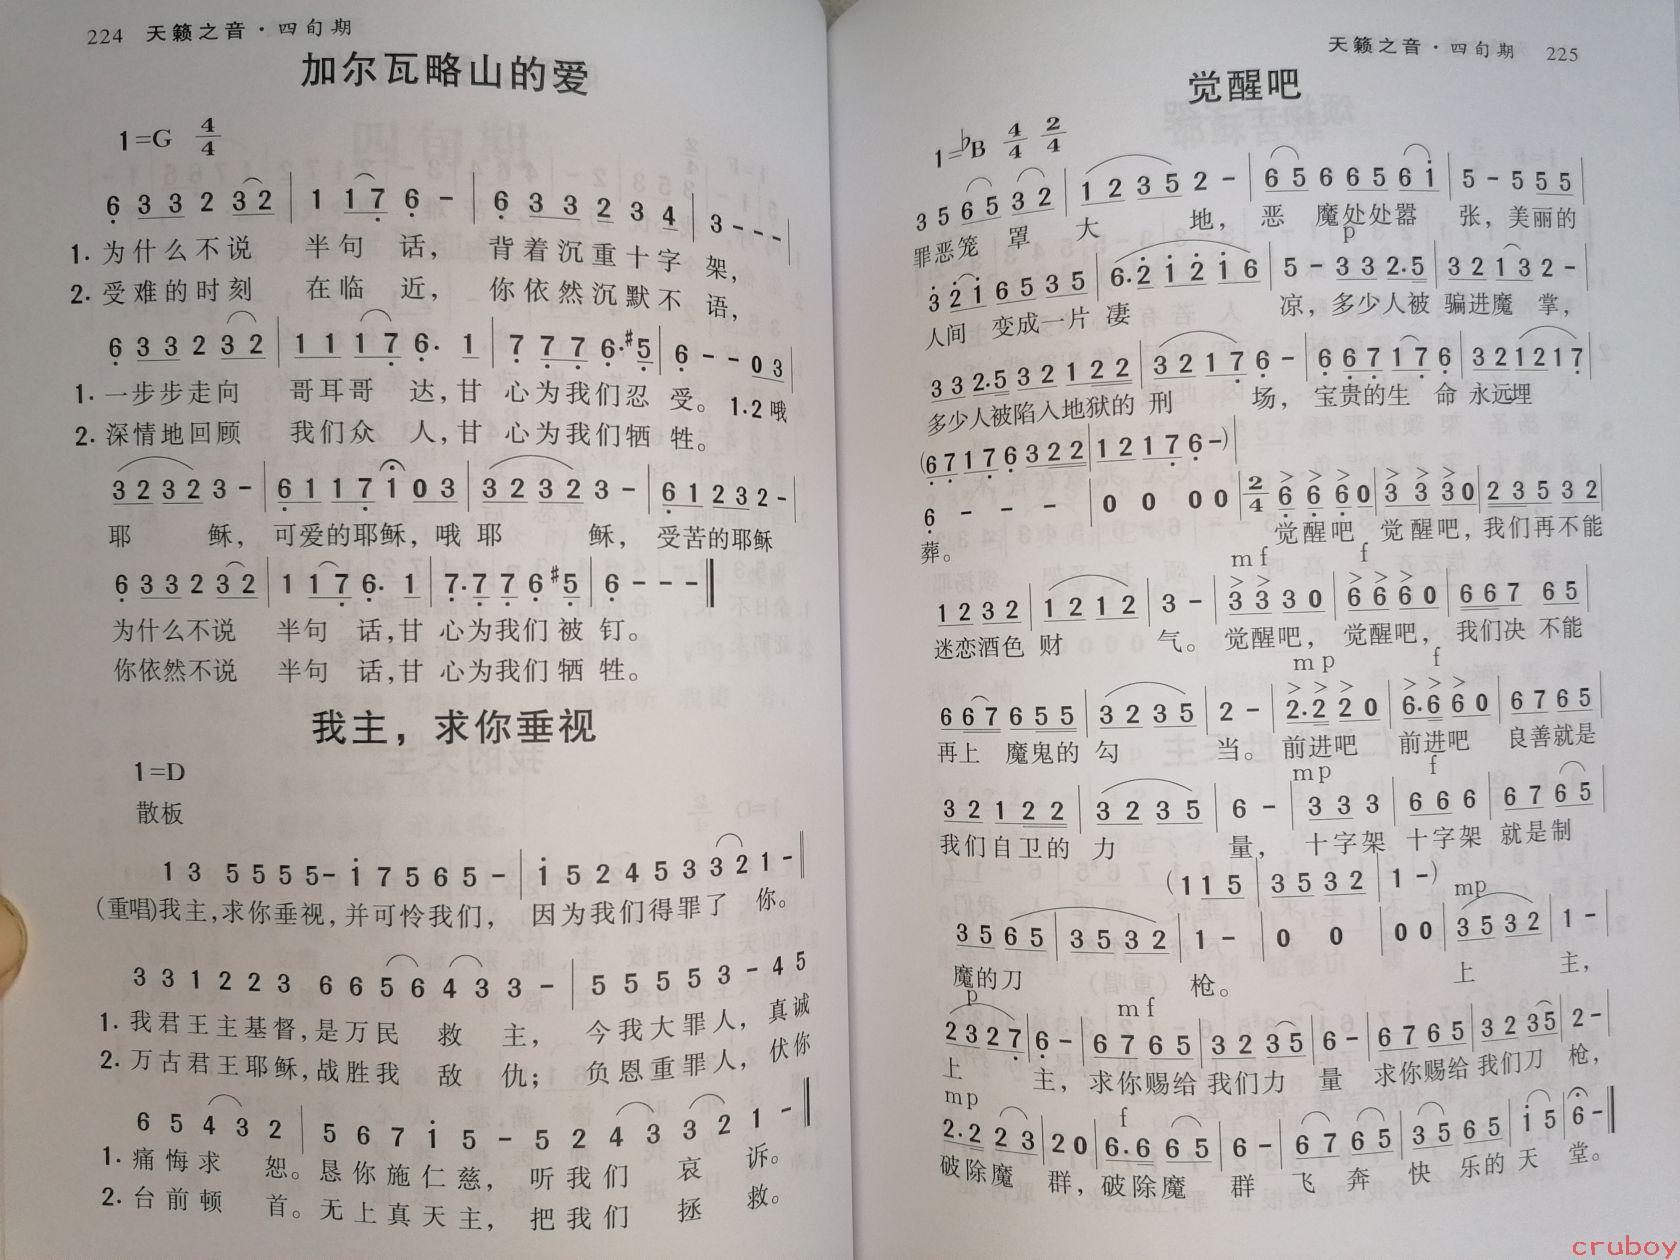 224 天籁之音·四旬期
加尔瓦略山的爱
1=G 4/4
6 3 3 2 3 2 | 1 1 7 6 - | 6 3 3 2 3 4 | 3 - - - |
1. 为什么不说 半句 话, 背着沉重十字 架,
2. 受难的时刻 在临 近, 你依然沉默不 语,
6 3 3 2 3 2 | 1 1 1 7 6· 1 | 7 7 7 6·#5 | 6 - - 0 3 |
1. 一步步走向 哥耳哥 达,甘 心为我们忍 受。 1.2 哦
2. 深情地回顾 我们众 人,甘 心为我们牺 牲。
3 2 3 2 3 - | 6 1 1 7 1 0 3 | 3 2 3 2 3 - | 6 1 2 3 2 - |
耶 稣, 可爱的耶稣,哦 耶 稣, 受苦的耶稣
6 3 3 2 3 2 | 1 1 7 6· 1 | 7·7 7 6 #5 | 6 - - - ‖
为什么不说 半句 话,甘 心为我们 被 钉。
你依然不说 半句 话,甘 心为我们 牺 牲。
我主，求你垂视
1=D
散板
1 3 5 5 5 5 - i 7 5 6 5 - | i 5 2 4 5 3 3 2 1 - ‖
(重唱)我主,求你垂视,并可怜我们, 因为我们得罪了 你。
3 3 1 2 2 3 6 6 5 6 4 3 3 - | 5 5 5 5 3 - 4 5
1. 我君王主基督,是万民 救 主, 今我大罪人, 真诚
2. 万古君王耶稣,战胜我 敌 仇; 负恩重罪人, 伏你
6 5 4 3 2 | 5 6 7 i 5 - 5 2 4 3 3 2 1 - ‖
1. 痛悔求 恕。恳你施仁慈, 听我们 哀 诉。
2. 台前顿 首。无上真天主, 把我们 拯 救。
天籁之音·四旬期 225
觉醒吧
1=♭B 4/4 2/4
3 5 6 5 3 2 | 1 2 3 5 2 - | 6 5 6 6 5 6 i | 5 - 5 5 5 |
罪恶笼 罩 大 地, 恶 魔处处嚣 张, 美丽的
p
3 2 i 6 5 3 5 | 6·2 i 2 i 6 | 5 - 3 3 2·5 | 3 2 1 3 2 - |
人间 变成一片 凄 凉, 多少人被 骗进魔 掌,
3 3 2·5 3 2 1 2 2 | 3 2 1 7 6 - | 6 6 7 1 7 6 | 3 2 1 2 1 7 |
多少人被陷入地狱的 刑 场, 宝贵的生 命 永远埋
(6 7 1 7 6 3 2 2 | 1 2 1 7 6 -) |
6 - - - | 0 0 0 0 | 2/4 6 6 6 0 | 3 3 3 0 | 2 3 5 3 2 |
葬。 觉醒吧 觉醒吧, 我们再不能
mf f
1 2 3 2 | 1 2 1 2 | 3 - | 3 3 3 0 | 6 6 6 0 | 6 6 7 6 5 |
迷恋酒色 财 气。 觉醒吧, 觉醒吧, 我们决 不能
mp f
6 6 7 6 5 5 | 3 2 3 5 | 2 - | 2·2 2 0 | 6·6 6 0 | 6 7 6 5 |
再上 魔鬼的 勾 当。 前进吧 前进吧 良善就是
mp f
3 2 1 2 2 | 3 2 3 5 | 6 - | 3 3 3 | 6 6 6 | 6 7 6 5 |
我们自卫的 力 量, 十字架 十字架 就是制
(1 1 5 | 3 5 3 2 | 1 -) mp
3 5 6 5 | 3 5 3 2 | 1 - | 0 0 | 0 0 | 3 5 3 2 | 1 - |
魔的刀 枪。 上 主,
p mf
2 3 2 7 | 6 - | 6 7 6 5 | 3 2 3 5 | 6 - | 6 7 6 5 | 3 2 3 5 | 2 - |
上 主, 求你赐给 我们力 量 求你赐给 我们刀 枪,
mp f
2·2 2 3 | 2 0 | 6·6 6 5 | 6 - | 6 7 6 5 | 3 5 6 5 | i 5 | 6 - ‖
破除魔 群, 破除魔 群 飞 奔 快 乐的 天 堂。
cruboy